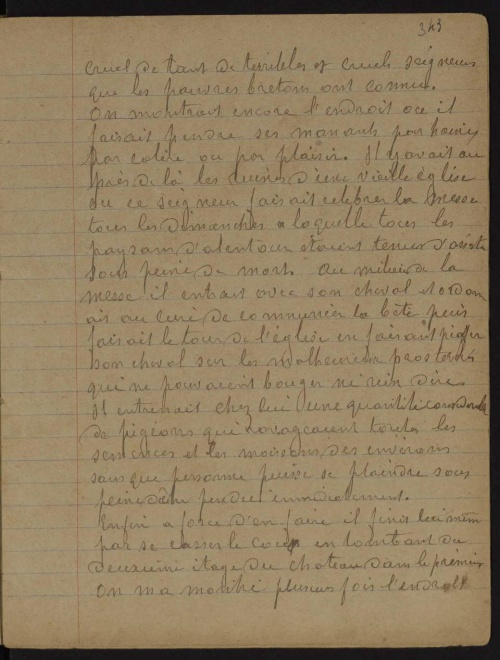 343
cruel de tant de terribles et cruels seigneurs
que les pauvres bretons ont connus.
On montrait encore l'endroit ou il
faisait pendre ses manants par haine,
par colère ou par plaisir. Il y avait au
près de là les ruines d'une vieille église
ou ce seigneur faisait celebrer la messe
tous les dimanches a laquelle tous les
paysans d'alentour étaient tenus d'assister
sous peine de mort. Au milieu de la
messe il entrait avec son cheval et ordon
ait au curé de communier la bête puis
faisait le tour de l'église en faisant piaffer
son cheval sur les malheureux prosternés
qui ne pouvaient bouger ni rien dire.
Il entretenait chez lui une quantité
de pigeons qui ravageaient toutes les
semences et les moissons des environs
sans que personne puisse se plaindre sous
peine d'être pendu immédiatement.
Enfin a force d'en faire il finit lui même
par se casser le cou en tombant du
deuxième étage du chateau dans le premier
On m'a montré plusieurs fois l'endroit